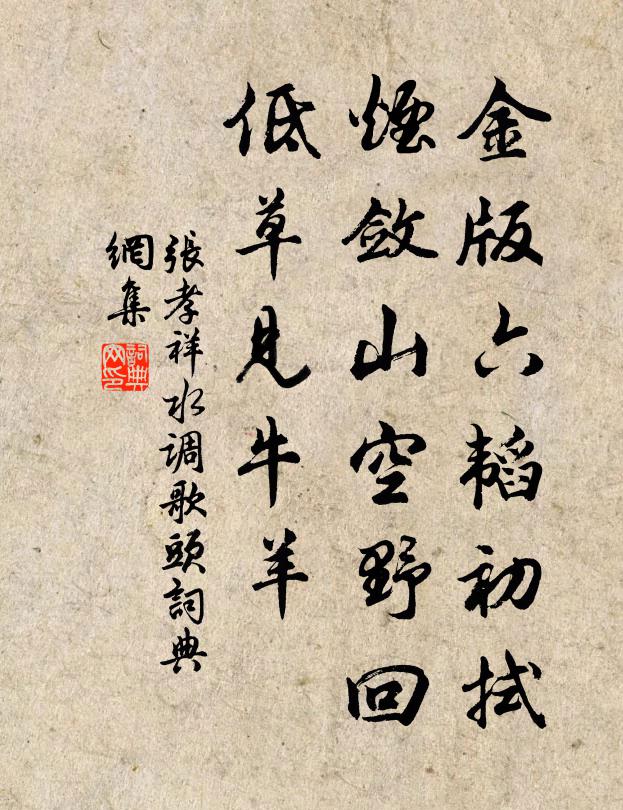 金版六韬初拭
煙斂山空野回
低草見牛羊
張孝祥水调歌頭詞典
網集
詞典
网印